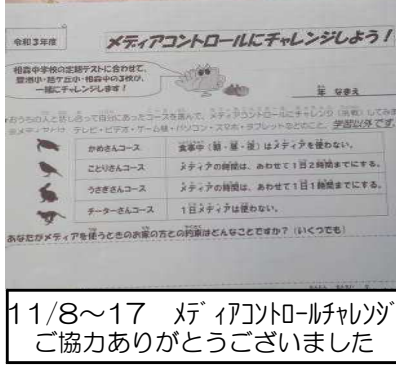 令和3年度
メディアコントロールにチャレンジしよう!
相森中学校の定期テストに合わせて、
豊洲小・旭ケ丘小・相森中の3校が、
一緒にチャレンジします!
年 なまえ
おうちの人と話し合って自分にあったコースを選んで、メディアコントロールにチャレンジ(挑戦)してみま
テレビ・ビデオ・ゲーム機・パソコン・スマホ・タブレットなどのこと。学習以外です。
かめさんコース 食事中(朝・昼・夜)はメディアを使わない。
ことりさんコース メディアの時間は、あわせて1日2時間までにする。
うさぎさんコース メディアの時間は、あわせて1日1時間までにする。
チーターさんコース 1日メディアは使わない。
あなたがメディアを使うときのお家の方との約束はどんなことですか?(いくつでも)
11/8~17 メディアコントロールチャレンジ
ご協力ありがとうございました